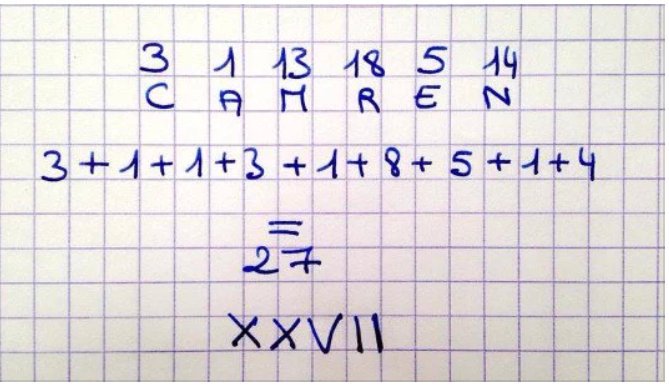 3 1 13 18 5 14
C A M R E N
3+1+1+3+1+8+5+1+4
=
27
XXVII